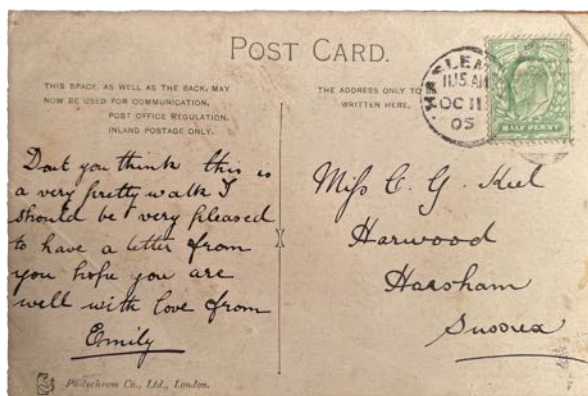 POST CARD.
THIS SPACE, AS WELL AS THE BACK, MAY
NOW BE USED FOR COMMUNICATION,
POST OFFICE REGULATION.
INLAND POSTAGE ONLY.
THE ADDRESS ONLY TO
WRITTEN HERE.
11.15 AM
OC 11
05
HALF PENNY
Dont you think this is
a very pretty walk I
should be very pleased
to have a letter from
you hope you are
well with love from
Emily
Miss C. G. Keel
Harwood
Horsham
Sussex
Photochrom Co., Ltd., London.